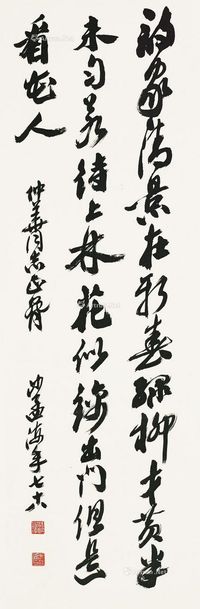 诗家清景在新春绿柳才黄半
未匀若待上林花似锦出门但是
看花人
仲华同志正腕
沙孟海年七十八